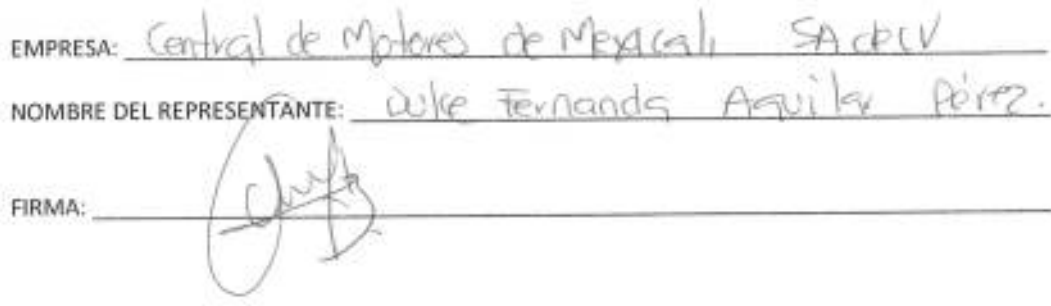 EMPRESA: Central de Motores de Mexicali SA de CV
NOMBRE DEL REPRESENTANTE: Dulce Fernanda Aguilar Pérez.
FIRMA: